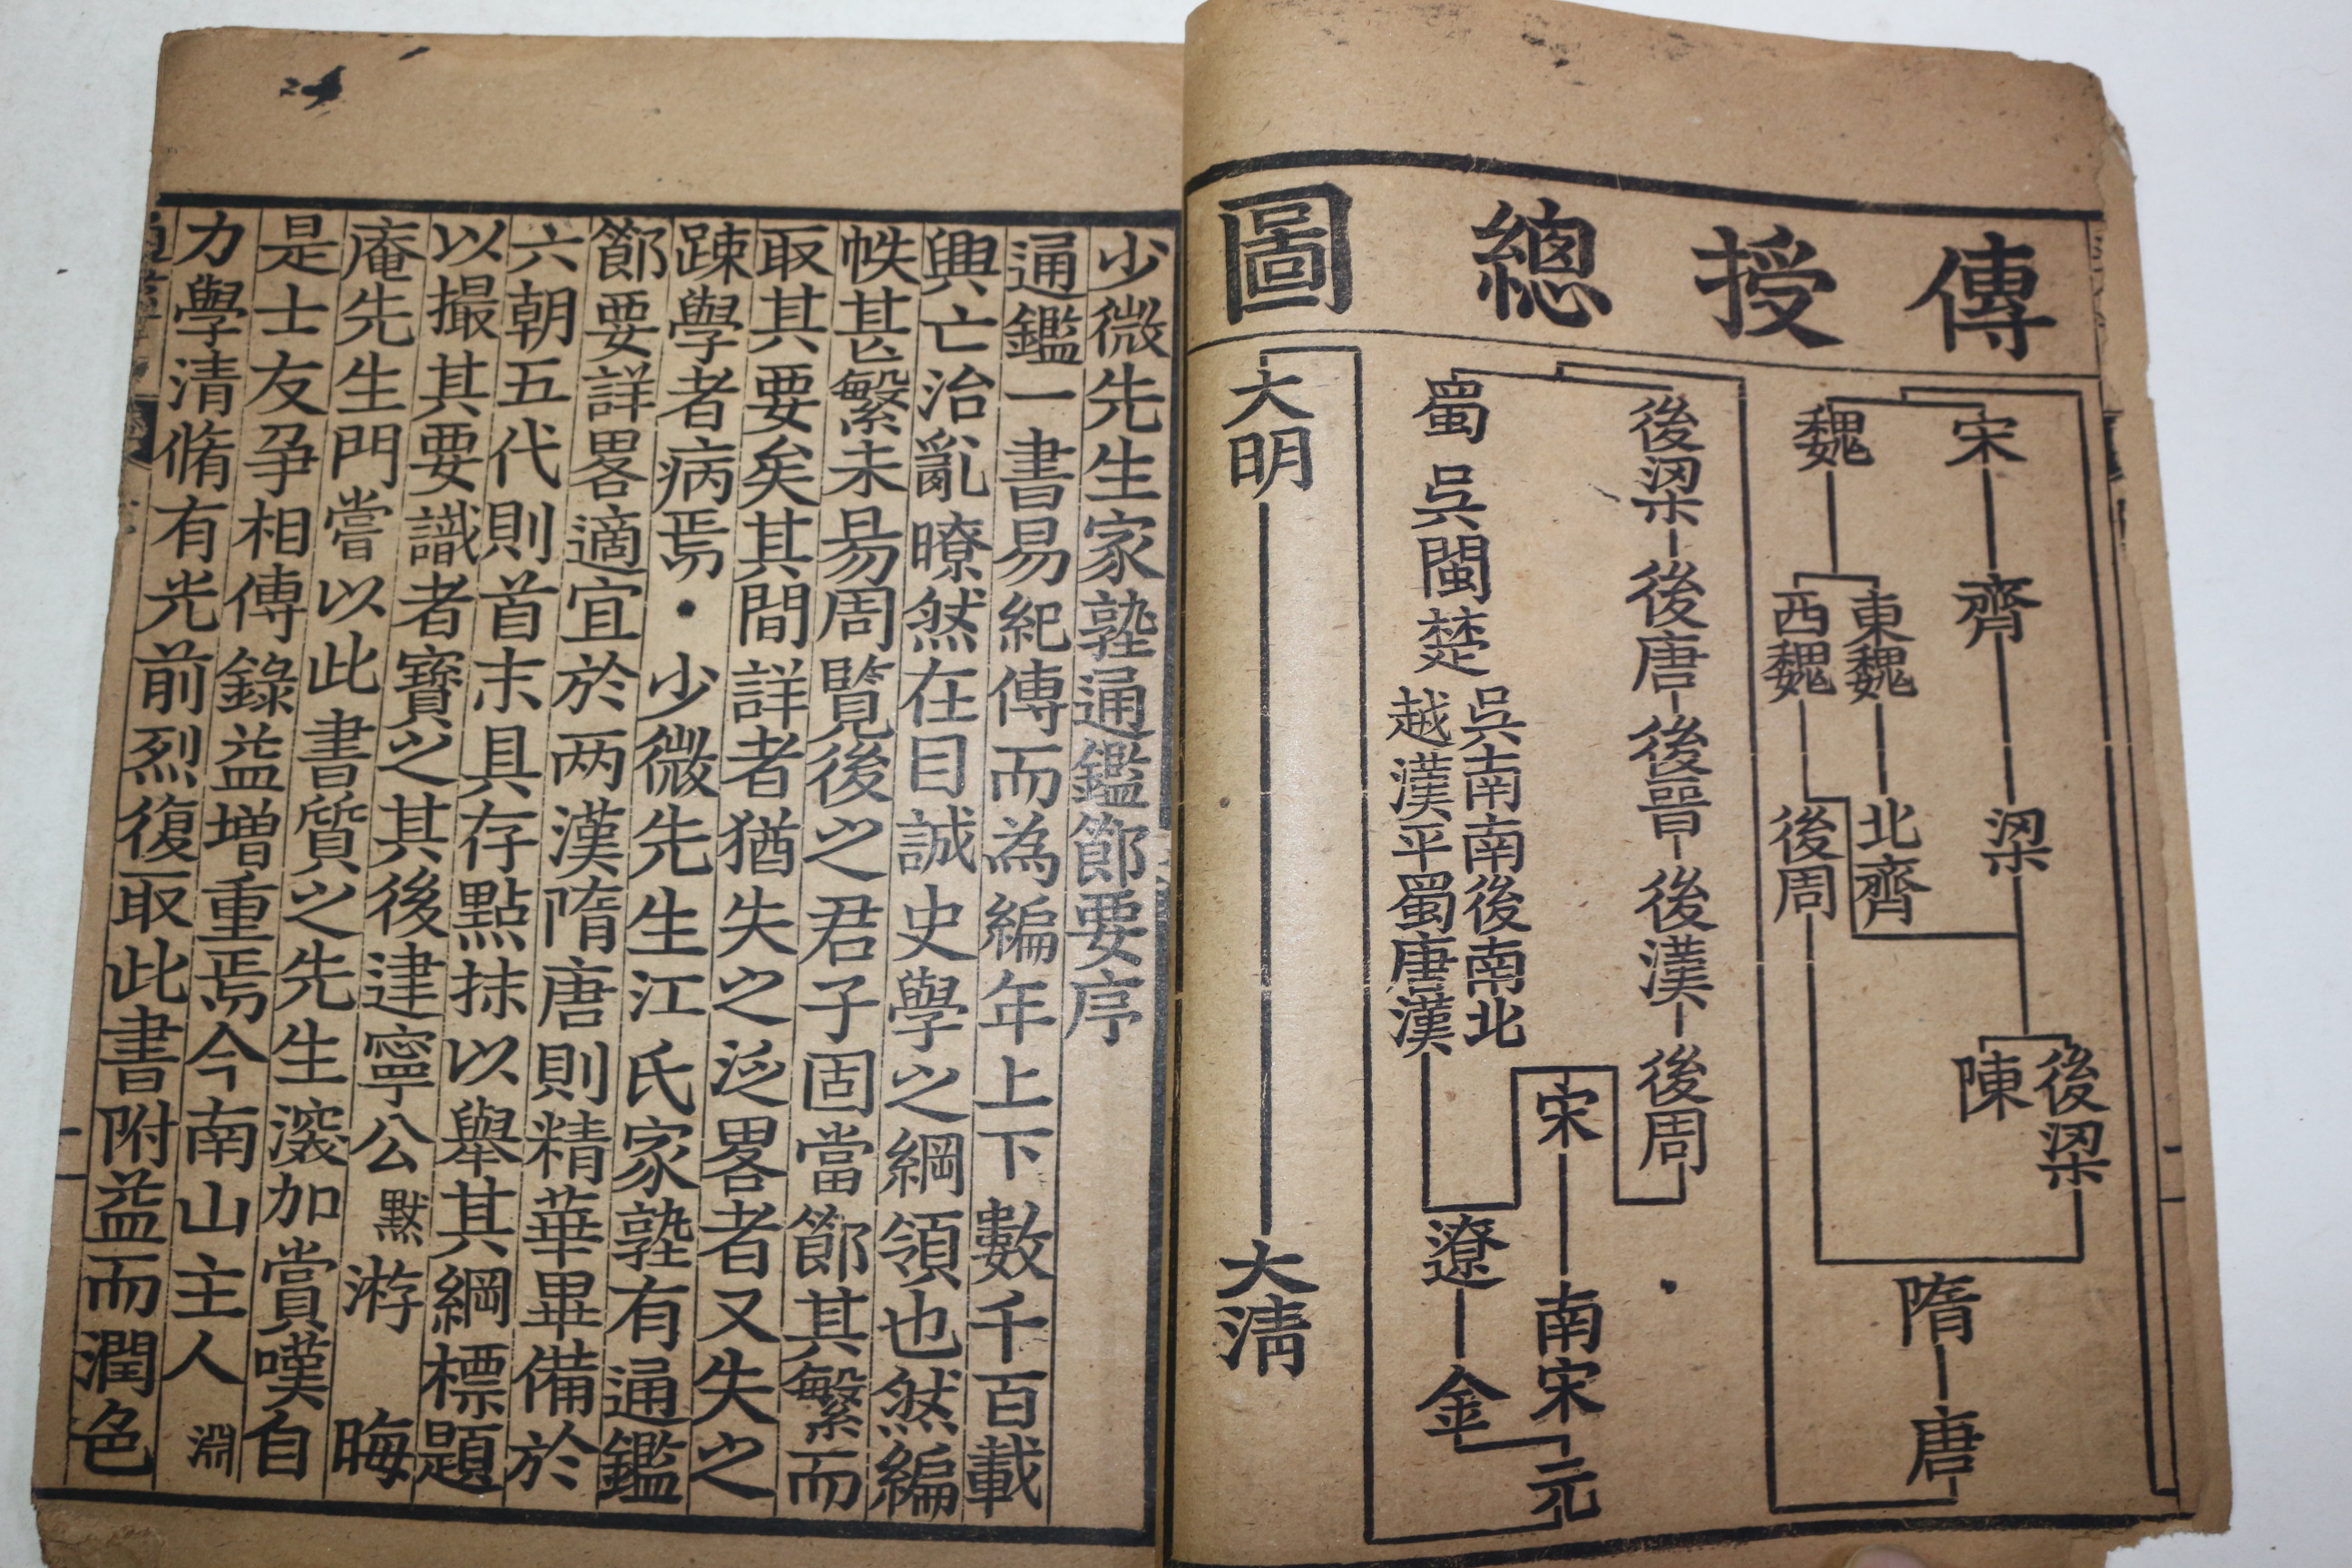 傳授總圖
宋 齊 梁 後梁
陳
魏 東魏 北齊
西魏 後周
隋 唐
後梁 後唐 後晉 後漢 後周
蜀 吳 閩 楚
吳南南後南北
越漢平蜀唐漢
宋 南宋 元
遼 金
大明 大淸
少微先生家塾通鑑節要序
通鑑一書易紀傳而為編年上下數千百載
興亡治亂暸然在目誠史學之綱領也然編
帙甚繁未易周覽後之君子固當節其繁而
取其要矣其間詳者猶失之泛畧者又失之
踈學者病焉・少微先生江氏家塾有通鑑
節要詳畧適宜於两漢隋唐則精華畢備於
六朝五代則首末具存點抹以舉其綱標題
以撮其要識者寶之其後建寧公默游晦
庵先生門嘗以此書質之先生深加賞嘆自
是士友爭相傳錄益增重焉今南山主人淵
力學清脩有光前烈復取此書附益而潤色